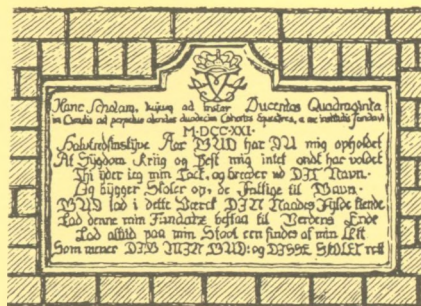 Hanc Scholam, hujus ad instar Ducentas Quadraginta
in ad perpetuo alendas duodecim Cohortes Equestres, a me institutis fundavi
M·DCC·XXI·
Halvtredsinstyve Aar GUD har DU mig opholdet
At Sygdom Kriig og Pest mig intet ondt har voldet
Thi yder jeg min Tack, og breeder ud DIT Navn·
Og bygger Skoler op, de Fattige til Gavn·
GUD lad i dette Værck DIN Naades Fylde kiende
Lad denne min Fundatz bestaa til Verdens Ende
Lad altiid paa min Stool een findes af min Lett
Som mener DIG MIN GUD: og DISSE SKOLER rett